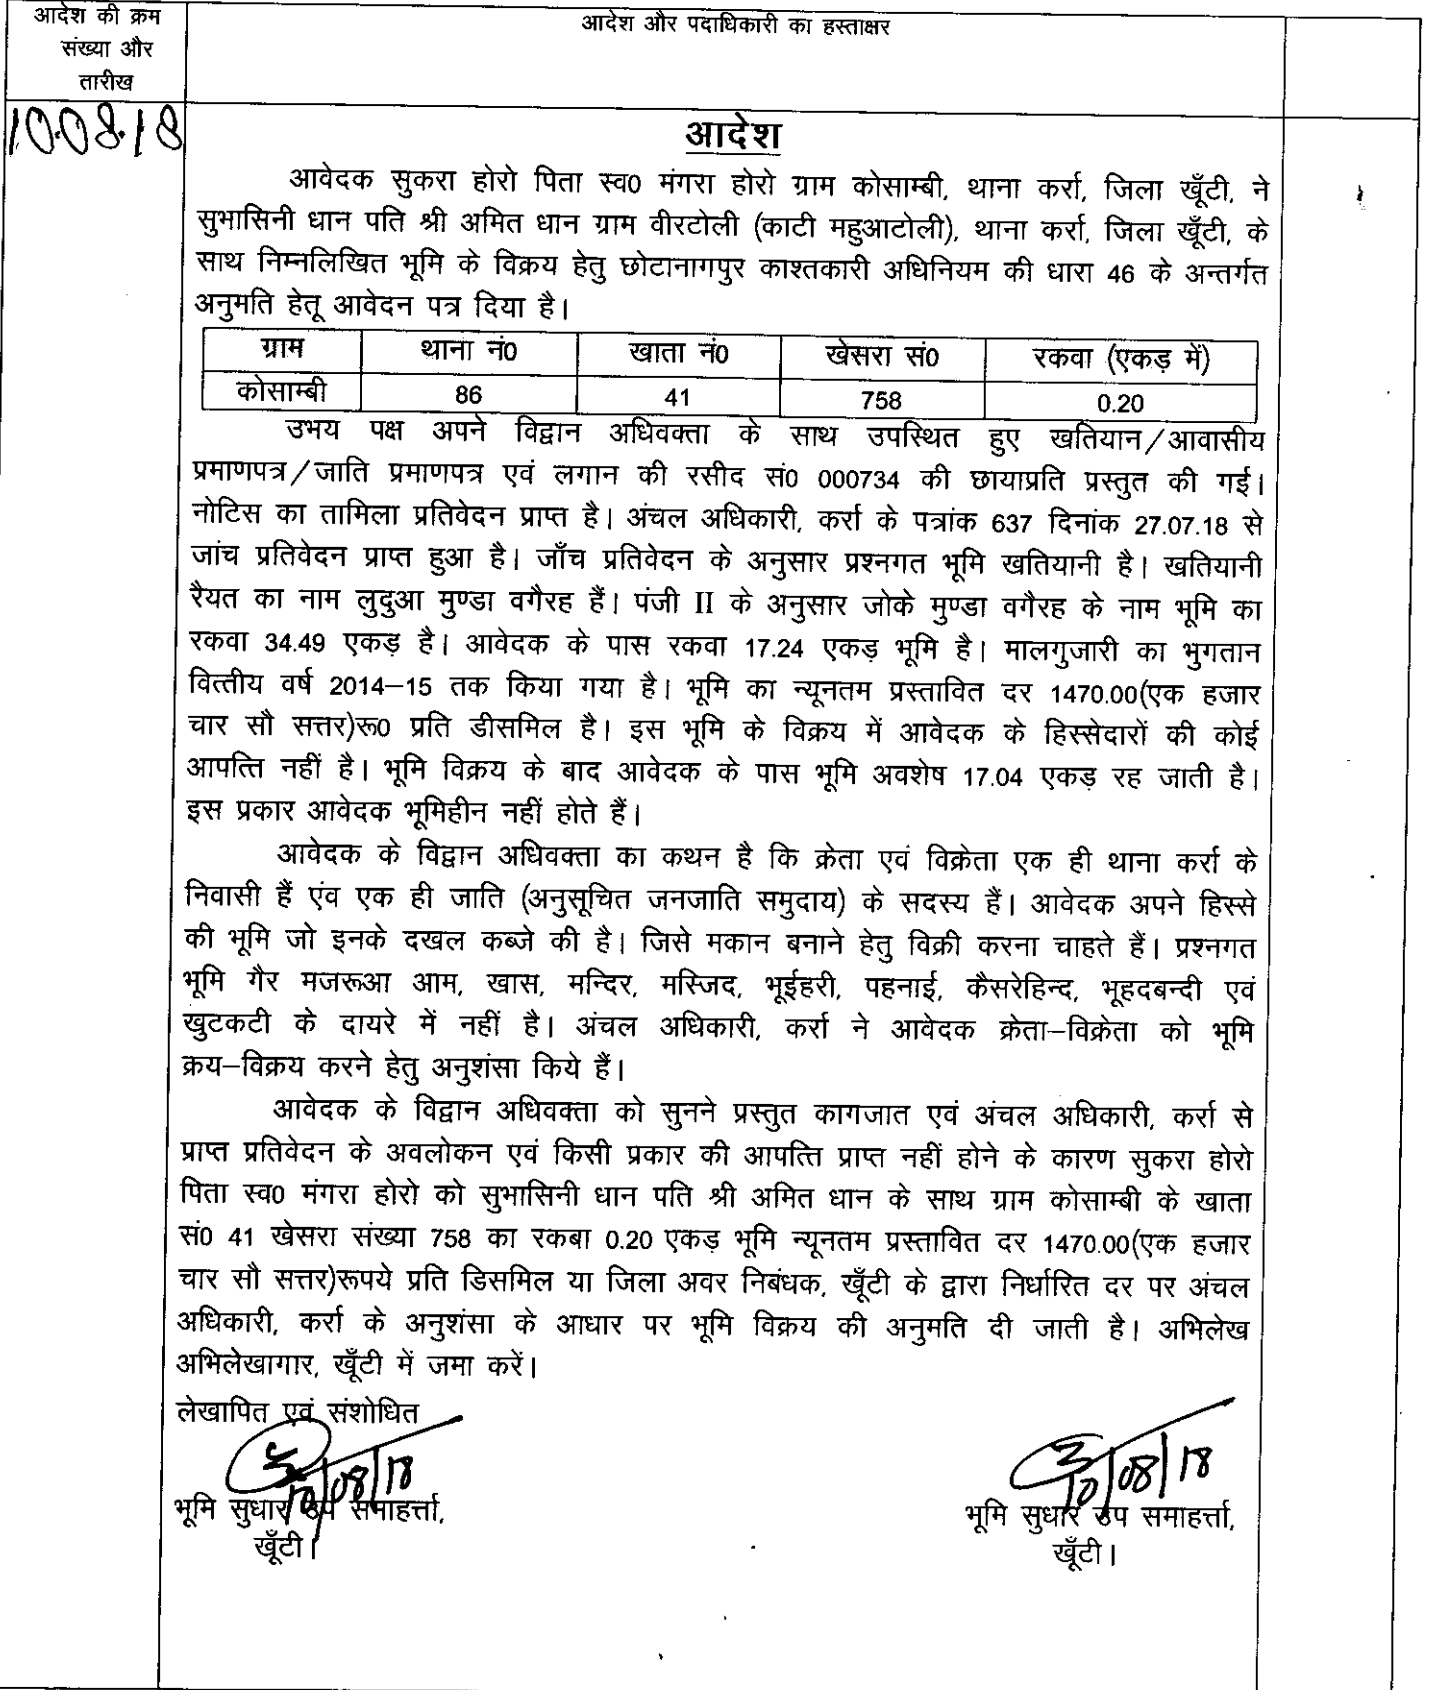 आदेश की क्रम
संख्या और
तारीख
आदेश और पदाधिकारी का हस्ताक्षर
10.08.18
आदेश
आवेदक सुकरा होरो पिता स्व0 मंगरा होरो ग्राम कोसाम्बी, थाना कर्रा, जिला खूँटी, ने
सुभासिनी धान पति श्री अमित धान ग्राम वीरटोली (काटी महुआटोली), थाना कर्रा, जिला खूँटी, के
साथ निम्नलिखित भूमि के विक्रय हेतु छोटानागपुर काश्तकारी अधिनियम की धारा 46 के अन्तर्गत
अनुमति हेतू आवेदन पत्र दिया है।
ग्राम थाना नं0 खाता नं0 खेसरा सं0 रकवा (एकड़ में)
कोसाम्बी 86 41 758 0.20
उभय पक्ष अपने विद्वान अधिवक्ता के साथ उपस्थित हुए खतियान/आवासीय
प्रमाणपत्र/जाति प्रमाणपत्र एवं लगान की रसीद सं0 000734 की छायाप्रति प्रस्तुत की गई।
नोटिस का तामिला प्रतिवेदन प्राप्त है। अंचल अधिकारी, कर्रा के पत्रांक 637 दिनांक 27.07.18 से
जांच प्रतिवेदन प्राप्त हुआ है। जाँच प्रतिवेदन के अनुसार प्रश्नगत भूमि खतियानी है। खतियानी
रैयत का नाम लुदुआ मुण्डा वगैरह हैं। पंजी II के अनुसार जोके मुण्डा वगैरह के नाम भूमि का
रकवा 34.49 एकड़ है। आवेदक के पास रकवा 17.24 एकड़ भूमि है। मालगुजारी का भुगतान
वित्तीय वर्ष 2014–15 तक किया गया है। भूमि का न्यूनतम प्रस्तावित दर 1470.00(एक हजार
चार सौ सत्तर)रू0 प्रति डीसमिल है। इस भूमि के विक्रय में आवेदक के हिस्सेदारों की कोई
आपत्ति नहीं है। भूमि विक्रय के बाद आवेदक के पास भूमि अवशेष 17.04 एकड़ रह जाती है।
इस प्रकार आवेदक भूमिहीन नहीं होते हैं।
आवेदक के विद्वान अधिवक्ता का कथन है कि क्रेता एवं विक्रेता एक ही थाना कर्रा के
निवासी हैं एंव एक ही जाति (अनुसूचित जनजाति समुदाय) के सदस्य हैं। आवेदक अपने हिस्से
की भूमि जो इनके दखल कब्जे की है। जिसे मकान बनाने हेतु विक्री करना चाहते हैं। प्रश्नगत
भूमि गैर मजरूआ आम, खास, मन्दिर, मस्जिद, भूईहरी, पहनाई, कैसरेहिन्द, भूहदबन्दी एवं
खुटकटी के दायरे में नहीं है। अंचल अधिकारी, कर्रा ने आवेदक क्रेता–विक्रेता को भूमि
क्रय–विक्रय करने हेतु अनुशंसा किये हैं।
आवेदक के विद्वान अधिवक्ता को सुनने प्रस्तुत कागजात एवं अंचल अधिकारी, कर्रा से
प्राप्त प्रतिवेदन के अवलोकन एवं किसी प्रकार की आपत्ति प्राप्त नहीं होने के कारण सुकरा होरो
पिता स्व0 मंगरा होरो को सुभासिनी धान पति श्री अमित धान के साथ ग्राम कोसाम्बी के खाता
सं0 41 खेसरा संख्या 758 का रकबा 0.20 एकड़ भूमि न्यूनतम प्रस्तावित दर 1470.00(एक हजार
चार सौ सत्तर)रूपये प्रति डिसमिल या जिला अवर निबंधक, खूँटी के द्वारा निर्धारित दर पर अंचल
अधिकारी, कर्रा के अनुशंसा के आधार पर भूमि विक्रय की अनुमति दी जाती है। अभिलेख
अभिलेखागार, खूँटी में जमा करें।
लेखापित एवं संशोधित
10/08/18
10/08/18
भूमि सुधार उप समाहर्त्ता,
खूँटी।
भूमि सुधार उप समाहर्त्ता,
खूँटी।